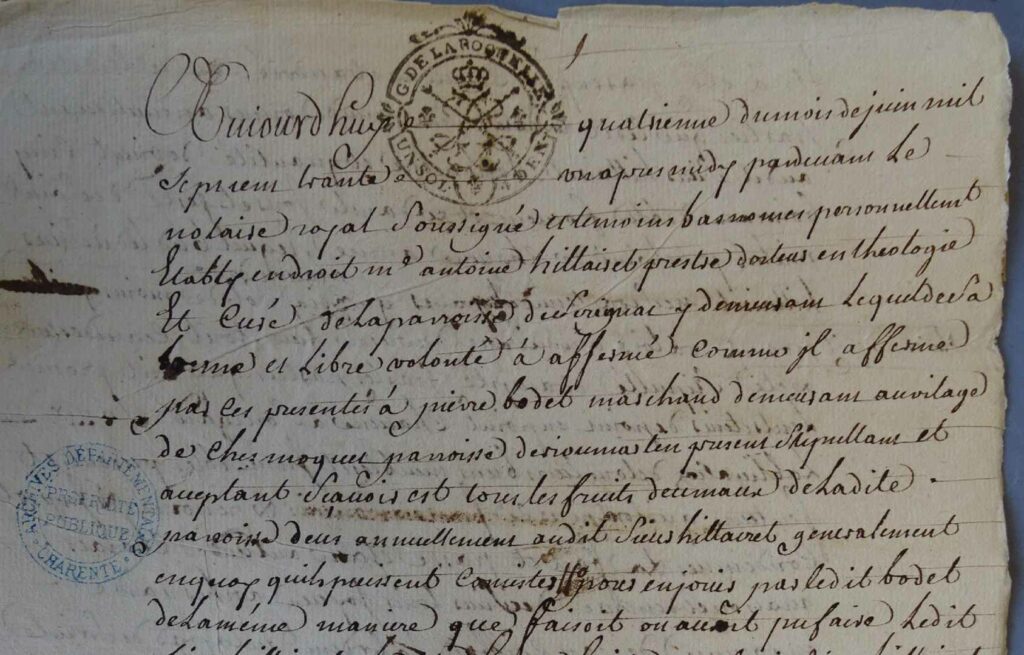 G. DE LA ROCHELLE
UN SOL
DEN
Auiourdhuy quatrieme du mois de juin mil
sept cent trante un apres midy pardevant le
notaise royal soussigné et temoins bas nomes personnellement
Etably en droit me antoine hillairet prestre docteus en theologie
Et Cusé de la paroisse de y demeusant lequel de sa
bonne et libre volonté à affesmé comme jl affesme
pas ces presentes à pierre bodet marchand demeusant au vilage
de chez moquet paroisse de present stipullant et
aceptant scavois est tous les fruits decimaux de ladite
paroisse deus annuellement audit sieus hillairet generalement
en quoy quils puissent consistes pous en jouis pas ledit bodet
de la méme maniere que faisoit ou auroit pu faire ledit
ARCHIVES DÉPARTEMENTALES
PROPRIÉTÉ
PUBLIQUE
CHARENTE